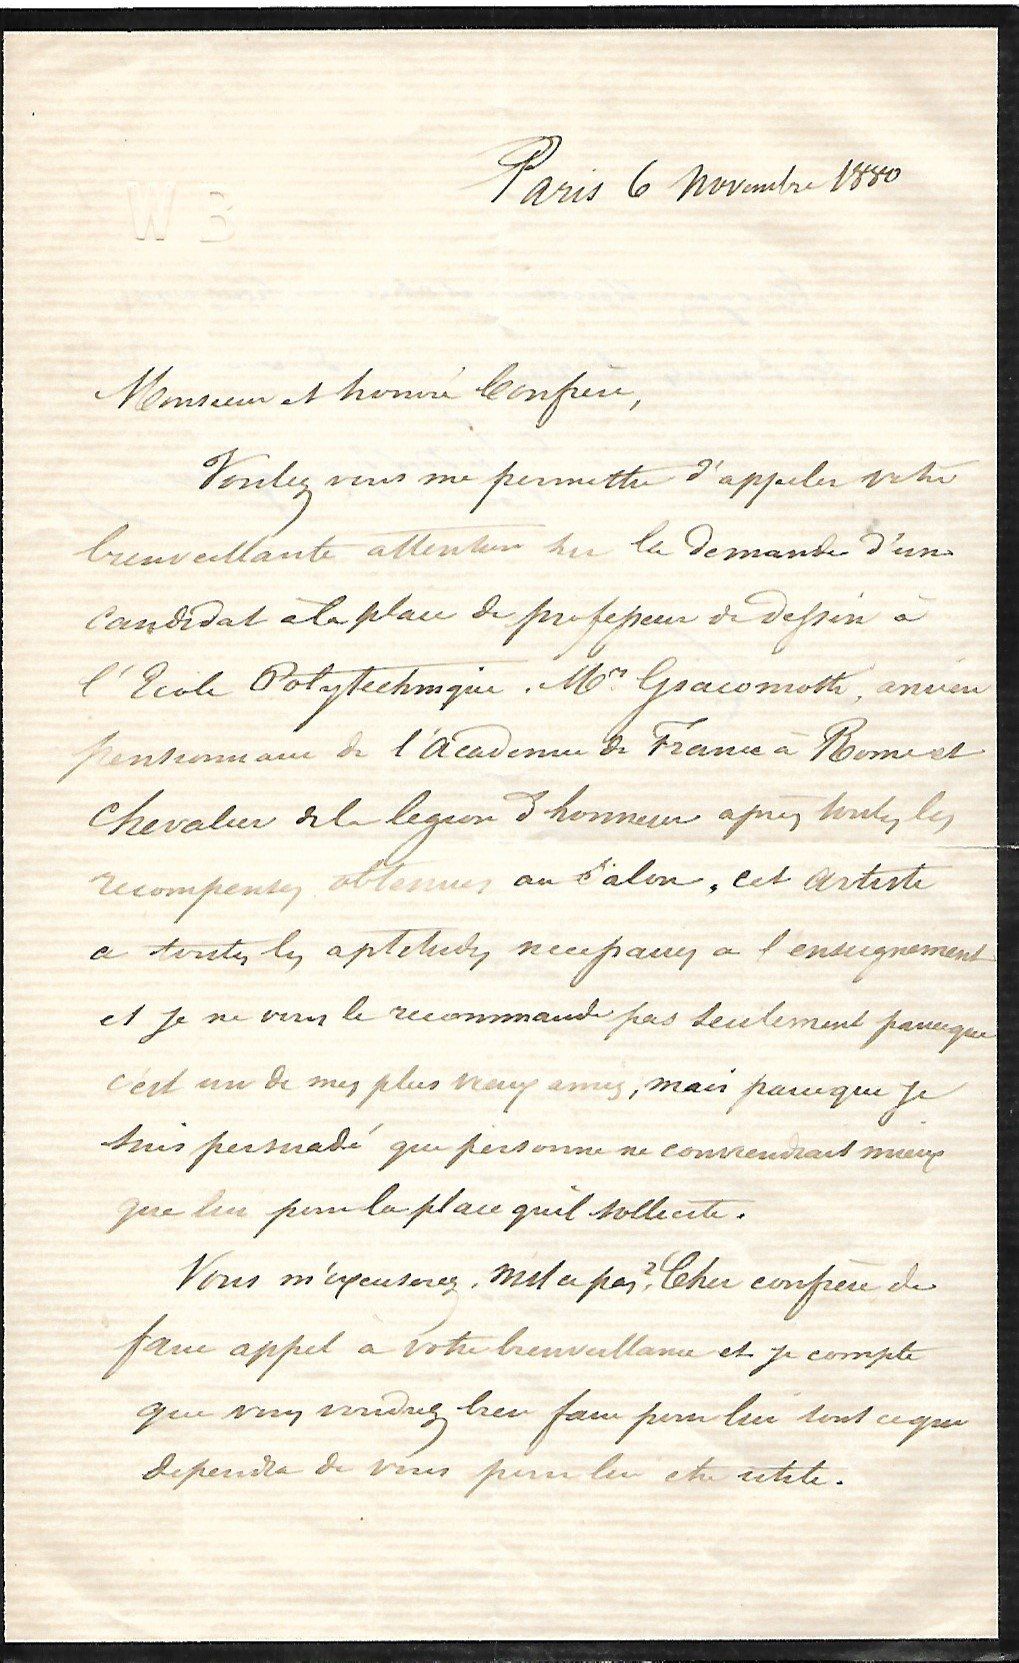 Paris 6 Novembre 1880
W B
Monsieur et honoré Confrère,
Voulez vous me permettre d'appeler votre
bienveillante attention sur la demande d'un
candidat à la place de professeur de dessin à
l'Ecole Polytechnique. Mr. Giacomotti, ancien
pensionnaire de l'Academie de France à Rome et
Chevalier de la legion d'honneur apres toutes les
recompenses obtenues au Salon, cet artiste
a toutes les aptitudes necessaires a l'enseignement
et je ne vous le recommande pas seulement parceque
c'est un de mes plus vieux amis, mais parceque je
suis persuadé que personne ne conviendrait mieux
que lui pour la place qu'il sollicite.
Vous m'excuserez, n'est ce pas? Cher confrère de
faire appel à votre bienveillance et je compte
que vous voudrez bien faire pour lui tout ce qui
dependra de vous pour lui etre utile.